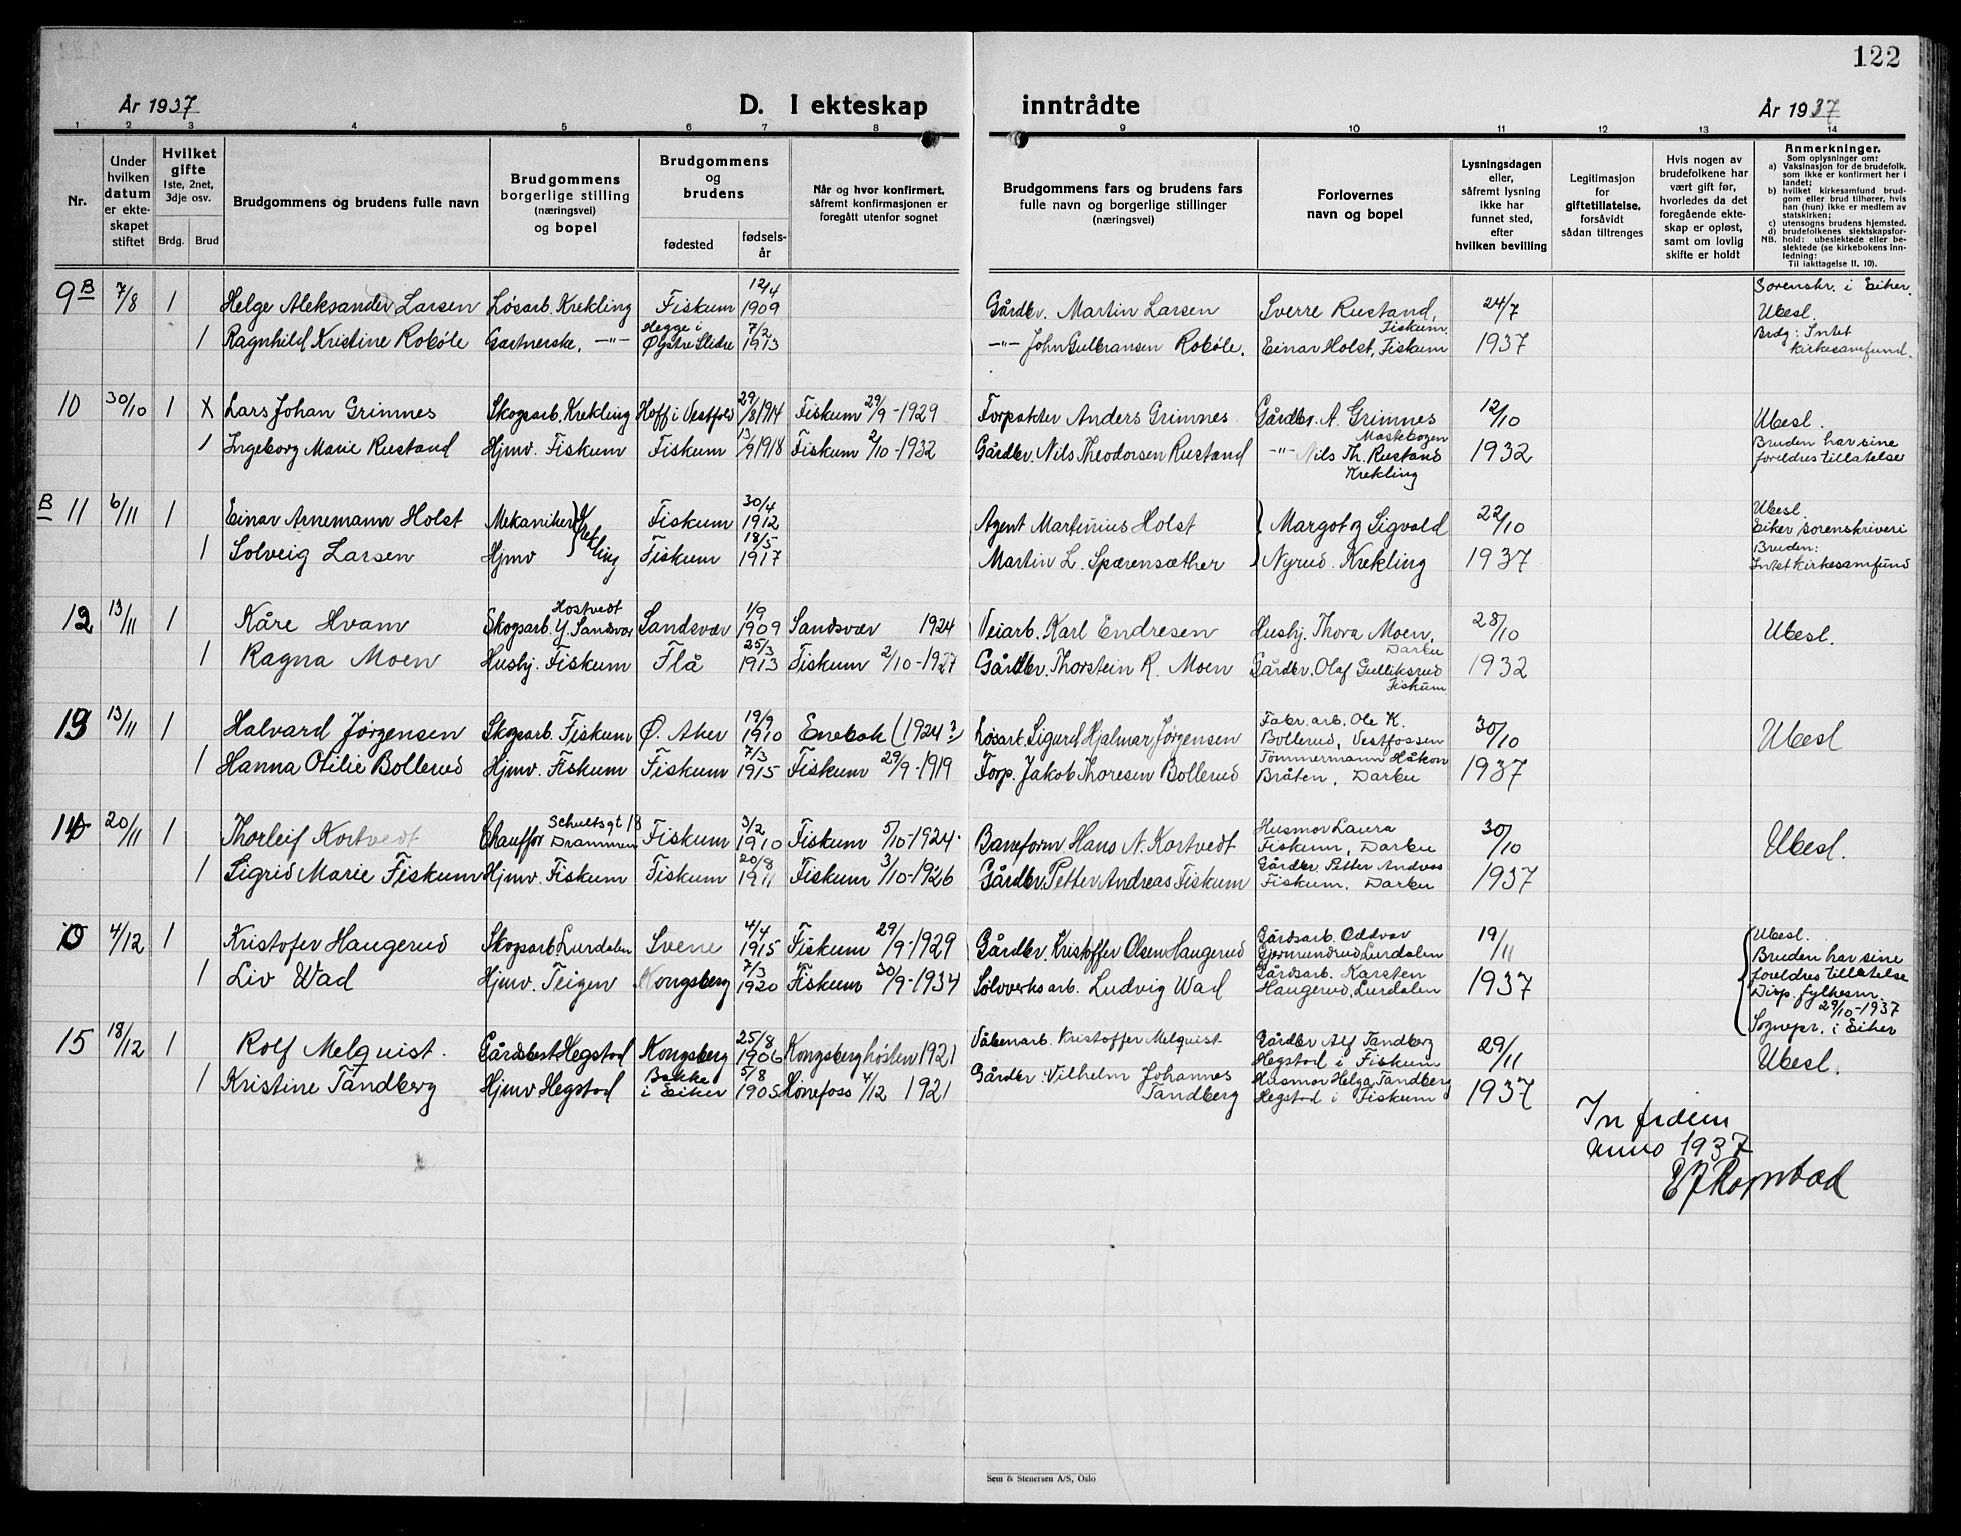 122
År 1937
D. I ekteskap inntrådte
År 1937
1 2 3 4 5 6 7 8 9 10 11 12 13 14
Nr.
Under hvilken datum er ekteskapet stiftet
Hvilket gifte 1ste, 2net, 3dje osv.
Brdg. Brud
Brudgommens og brudens fulle navn
Brudgommens borgerlige stilling (næringsvei) og bopel
Brudgommens og brudens
fødested
fødselsår
Når og hvor konfirmert, såfremt konfirmasjonen er foregått utenfor sognet
Brudgommens fars og brudens fars fulle navn og borgerlige stillinger (næringsvei)
Forlovernes navn og bopel
Lysningsdagen eller, såfremt lysning ikke har funnet sted, efter hvilken bevilling
Legitimasjon for giftetillatelse, forsåvidt sådan tiltrenges
Hvis nogen av brudefolkene har vært gift før, hvorledes da det foregående ekteskap er opløst, samt om lovlig skifte er holdt
Anmerkninger.
Som oplysninger om:
a) Vaksinasjon for de brudefolk, som ikke er konfirmert her i landet;
b) hvilket kirkesamfund brudgom eller brud tilhører, hvis han (hun) ikke er medlem av statskirken;
c) utensogns brudens hjemsted.
d) brudefolkenes slektskapsforhold: ubeslektede eller beslektede (se kirkebokens Innledning:
NB.
Til iakttagelse II, 10).
9 B 7/8 1 Helge Aleksander Larsen Løsarb. Krekling Fiskum 12/4 1909 Gårdbr. Martin Larsen Sverre Rustand, Fiskum 24/7 Sorenskr. i Eiker. Ubesl.
1 Ragnhild Kristine Robøle Gartnerske, -"- Hegge i Øystre Slidre 7/2 1913 -"- John Gulbransen Robøle. Einar Holst, Fiskum 1937 Brdg: Intet kirkesamfund.
10 30/10 1 X Lars Johan Grimnes Skogsarb. Krekling Hoff i Vestfold 29/8 1914 Fiskum 29/9-1929 Forpakter Anders Grimnes Gårdbr. A. Grimnes 12/10 Ubesl.
1 Ingeborg Marie Rustand Hjmv. Fiskum Fiskum 13/9 1918 Fiskum 2/10-1932 Gårdbr. Nils Theodorsen Rustand -"- Nils Th. Rustand Krekling 1932 Bruden har sine foreldres tillatelse
B 11 6/11 1 Einar Arnemann Holst Mekaniker } Krekling Fiskum 30/4 1912 Agent Martinius Holst } Margot og Sigvald 22/10 Ubesl. Eiker sorenskriveri
1 Solveig Larsen Hjmv Fiskum 18/5 1917 Martin L. Spærensæther Nyrud. Krekling 1937 Bruden: Intet kirkesamfund
12 13/11 1 Kåre Hvam Skogsarb. Hostvedt Y. Sandsvær Sandsvær 1/9 1909 Sandsvær 1924 Veiarb. Karl Endresen Husbj. Thora Moen, Darbu 28/10 Ubesl.
1 Ragna Moen Husbj. Fiskum Flå 25/3 1913 Fiskum 2/10-1927 Gårdbr. Thorstein R. Moen Gårdbr. Olaf Gulliksrud Fiskum 1932
13 13/11 1 Halvard Jørgensen Skogsarb. Fiskum Ø. Aker 19/9 1910 Enebak (1924?) Løsarb. Sigurd Hjalmar Jørgensen Fabr. arb. Ole K. Bollerud, Vestfossen 30/10 Ubesl
1 Hanna Otilie Bollerud Hjmv. Fiskum Fiskum 7/3 1915 Fiskum 29/9-1919 Forp. Jakob Thoresen Bollerud Tømmermann Håkon Bråten, Darbu 1937
14 20/11 1 Thorleif Kortvedt Chauffør Schultsgt 18 Drammen Fiskum 3/2 1910 Fiskum 5/10-1924. Baneform Hans N. Kortvedt Husmor Laura Fiskum, Darbu 30/10 Ubesl.
1 Sigrid Marie Fiskum Hjmv. Fiskum Fiskum 20/8 1911 Fiskum 3/10-1926 Gårdbr. Petter Andreas Fiskum Gårdbr. Petter Andreas Fiskum, Darbu 1937
0 4/12 1 Kristofer Haugerud Skogsarb. Lurdalen Svene 4/4 1915 Fiskum 29/9-1929 Gårdbr. Kristoffer Olsen Haugerud Gårdsarb. Oddvar Gjermundrud Lurdalen 19/11 Ubesl. Bruden har sine
1 Liv Wad Hjmv. Teigen Kongsberg 7/3 1920 Fiskum 30/9-1934 Sølvverksarb. Ludvig Wad Gårdsarb. Karsten Haugerud, Lurdalen 1937 foreldres tillatelse Disp. fylkesm. 29/10-1937 Sognepr. i Eiker
15 18/12 1 Rolf Melquist. Gårdsbest Hegstad Kongsberg 25/8 1906 Kongsberg høsten 1921 Våbenarb. Kristoffer Melquist Gårdbr Alf Tandberg Hegstad i Fiskum 29/11 Ubesl.
1 Kristine Tandberg Hjmv Hegstad Bakke i Eiker 5/8 1905 Hønefoss 4/12 1921 Gårdbr. Vilhelm Johannes Tandberg Husmor Helga Tandberg Hegstad i Fiskum 1937
In fidem
anno 1937
Sem & Stenersen A/S, Oslo